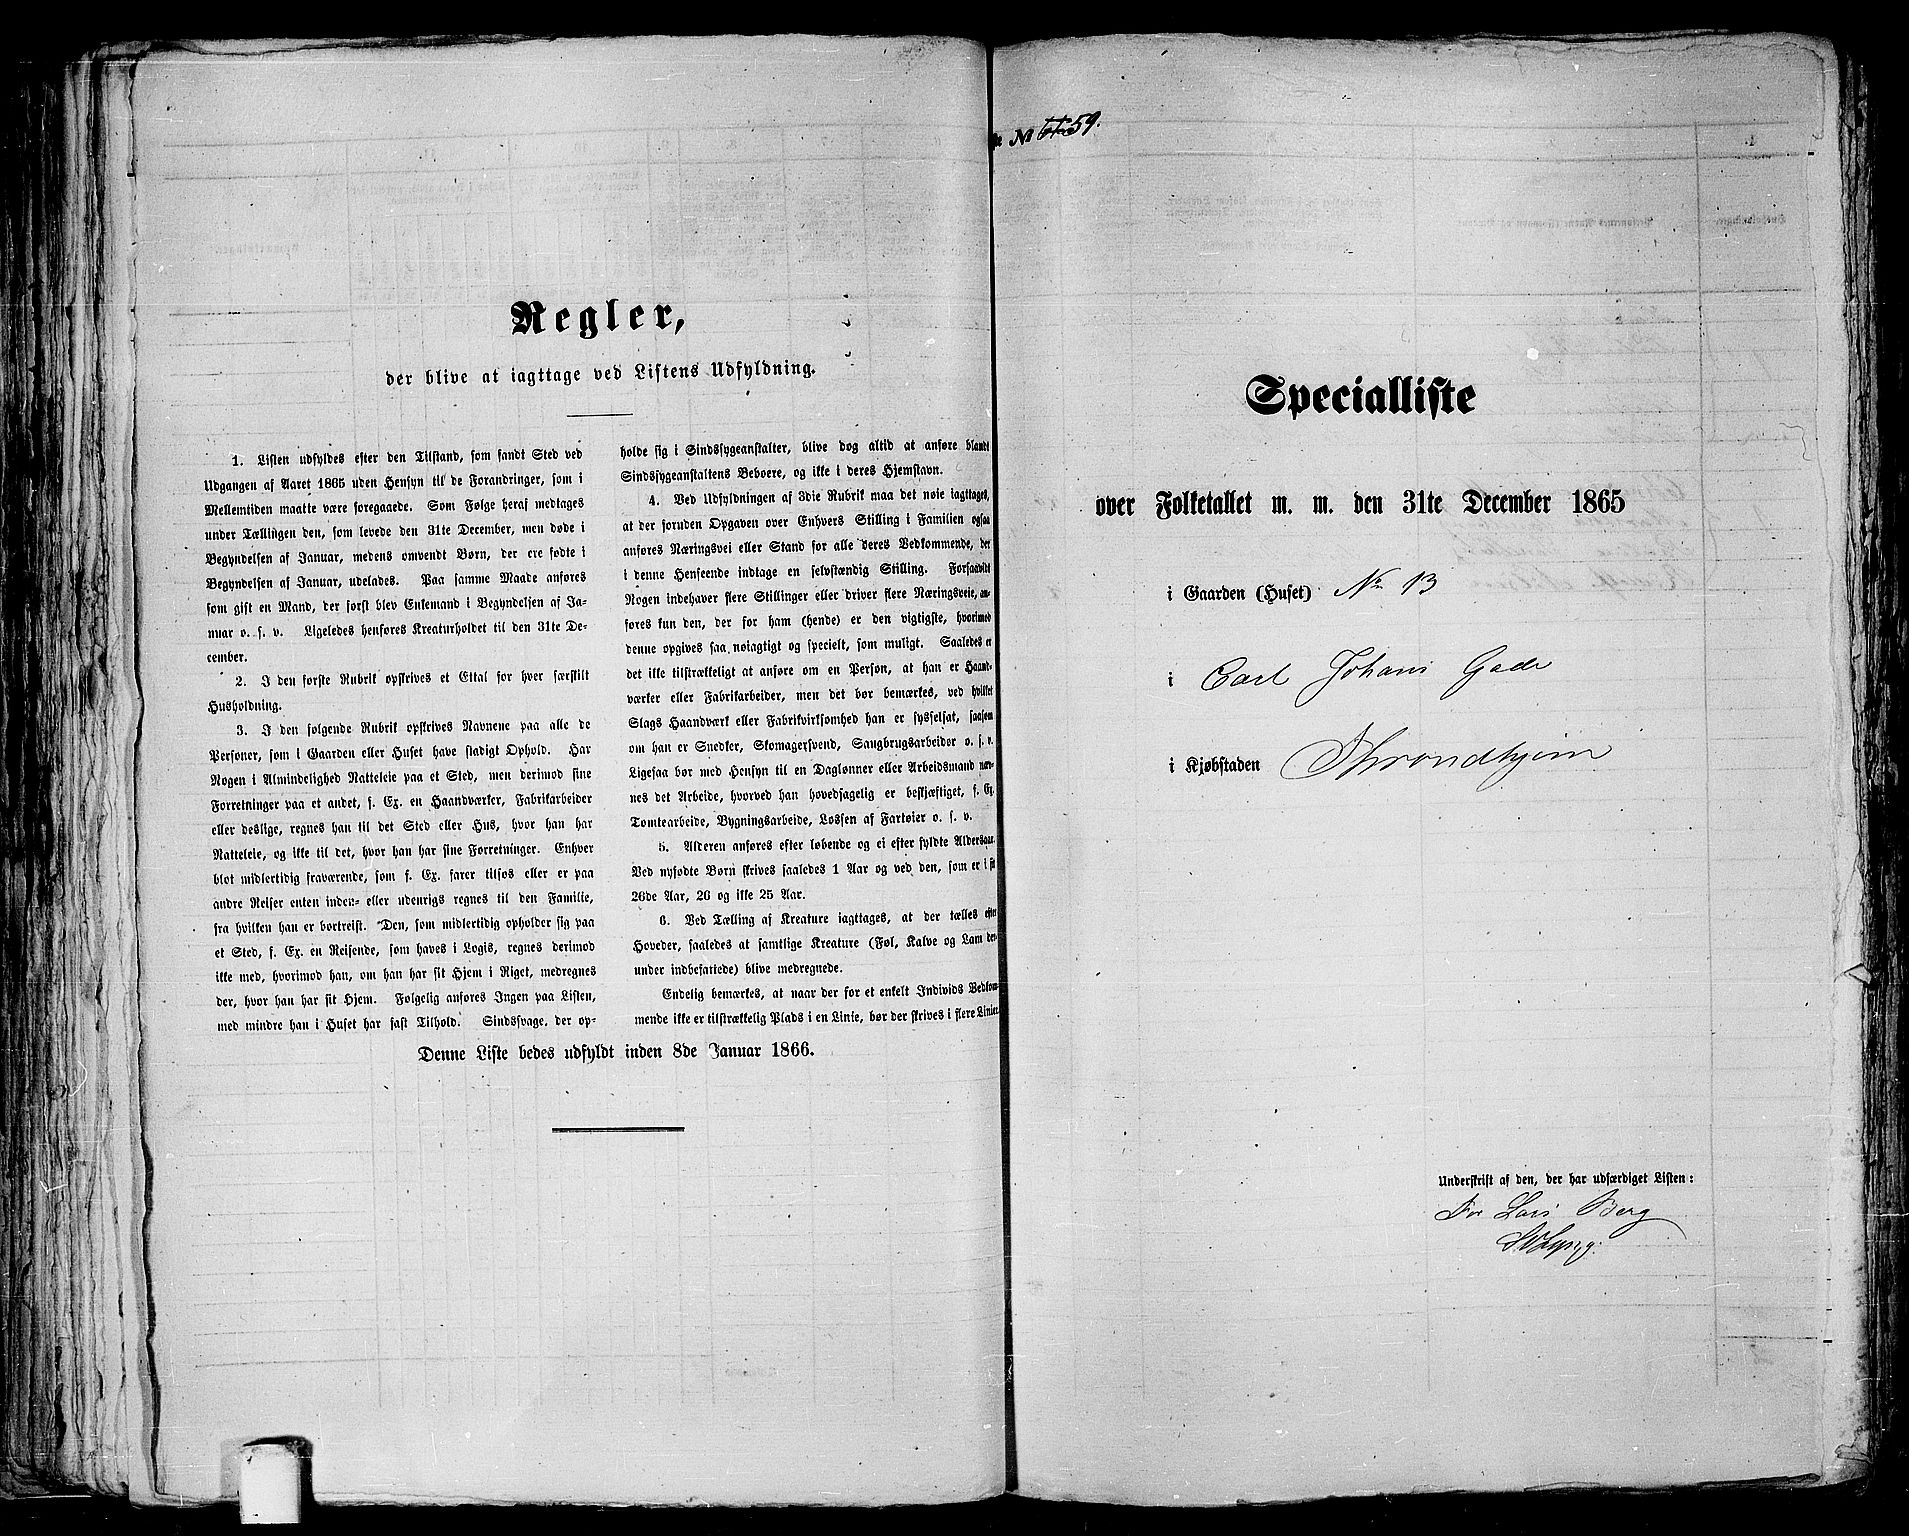 Regler,
der blive at iagttage ved Listens Udfyldning.
1. Listen udfyldes efter den Tilstand, som fandt Sted ved
Udgangen af Aaret 1865 uden Hensyn til de Forandringer, som i
Mellemtiden maatte være foregaaede. Som Følge heraf medtages
under Tællingen den, som levede den 31te December, men døde i
Begyndelsen af Januar, medens omvendt Børn, der ere fødte i
Begyndelsen af Januar, udelades. Paa samme Maade anføres
som gift en Mand, der først blev Enkemand i Begyndelsen af Ja-
nuar o. s. v. Ligeledes henføres Kreaturholdet til den 31te De-
cember.
2. I den første Rubrik opskrives et Ettal for hver særskilt
Husholdning.
3. I den følgende Rubrik opskrives Navnene paa alle de
Personer, som i Gaarden eller Huset have stadigt Ophold. Har
Nogen i Almindelighed Natteleie paa et Sted, men derimod sine
Forretninger paa et andet, f. Ex. en Haandværker, Fabrikarbeider
eller deslige, regnes han til det Sted eller Hus, hvor han har
Natteleie, og ikke til det, hvor han har sine Forretninger. Enhver
blot midlertidig fraværende, som f. Ex. farer tilsøs eller er paa
andre Reiser enten inden- eller udenrigs regnes til den Familie,
fra hvilken han er bortreist. Den, som midlertidig opholder sig paa
et Sted, f. Ex. en Reisende, som haves i Logis, regnes derimod
ikke med, hvorimod han, om han har sit Hjem i Riget, medregnes
der, hvor han har sit Hjem. Følgelig anføres Ingen paa Listen,
med mindre han i Huset har fast Tilhold. Sindssvage, der op-
holde sig i Sindssygeanstalter, blive dog altid at anføre blandt
Sindssygeanstaltens Beboere, og ikke i deres Hjemstavn.
4. Ved Udfyldningen af 3die Rubrik maa det nøie iagttages,
at der foruden Opgaven over Enhvers Stilling i Familien ogsaa
anføres Næringsvei eller Stand for alle deres Vedkommende, der
i denne Henseende indtage en selvstændig Stilling. Forsaavidt
Nogen indehaver flere Stillinger eller driver flere Næringsveie, an-
føres kun den, der for ham (hende) er den vigtigste, hvorimod
denne opgives saa nøiagtigt og specielt, som muligt. Saaledes er
det ikke tilstrækkeligt at anføre om en Person, at han er Haand-
værker eller Fabrikarbeider, men det bør bemærkes, ved hvilket
Slags Haandværk eller Fabrikvirksomhed han er sysselsat, saasom
om han er Snedker, Skomagersvend, Saugbrugsarbeider o. s. v.
Ligesaa bør med Hensyn til en Dagløn­ner eller Arbeidsmand næv-
nes det Arbeide, hvorved han hovedsagelig er beskjæftiget, f. Ex.
Tomtearbeide, Bygningsarbeide, Lossen af Fartøier o. s. v.
5. Alderen anføres efter løbende og ei efter fyldte Aldersaar.
Ved nyfødte Børn skrives saaledes 1 Aar og ved den, som er i sit
26de Aar, 26 og ikke 25 Aar.
6. Ved Tælling af Kreature iagttages, at der tælles efter
Hoveder, saaledes at samtlige Kreature (Føl, Kalve og Lam der-
under indbefattede) blive medregnede.
Endelig bemærkes, at naar der for et enkelt Individs Vedkom-
mende ikke er tilstrækkelig Plads i en Linie, bør der skrives i flere Linier.
Denne Liste bedes udfyldt inden 8de Januar 1866.
№ 59.
Specialliste
over Folketallet m. m. den 31te December 1865
i Gaarden (Huset) No 13
i Carl Johans Gade
i Kjøbstaden Throndhjem
Underskrift af den, der har udfærdiget Listen:
For Lars Berg